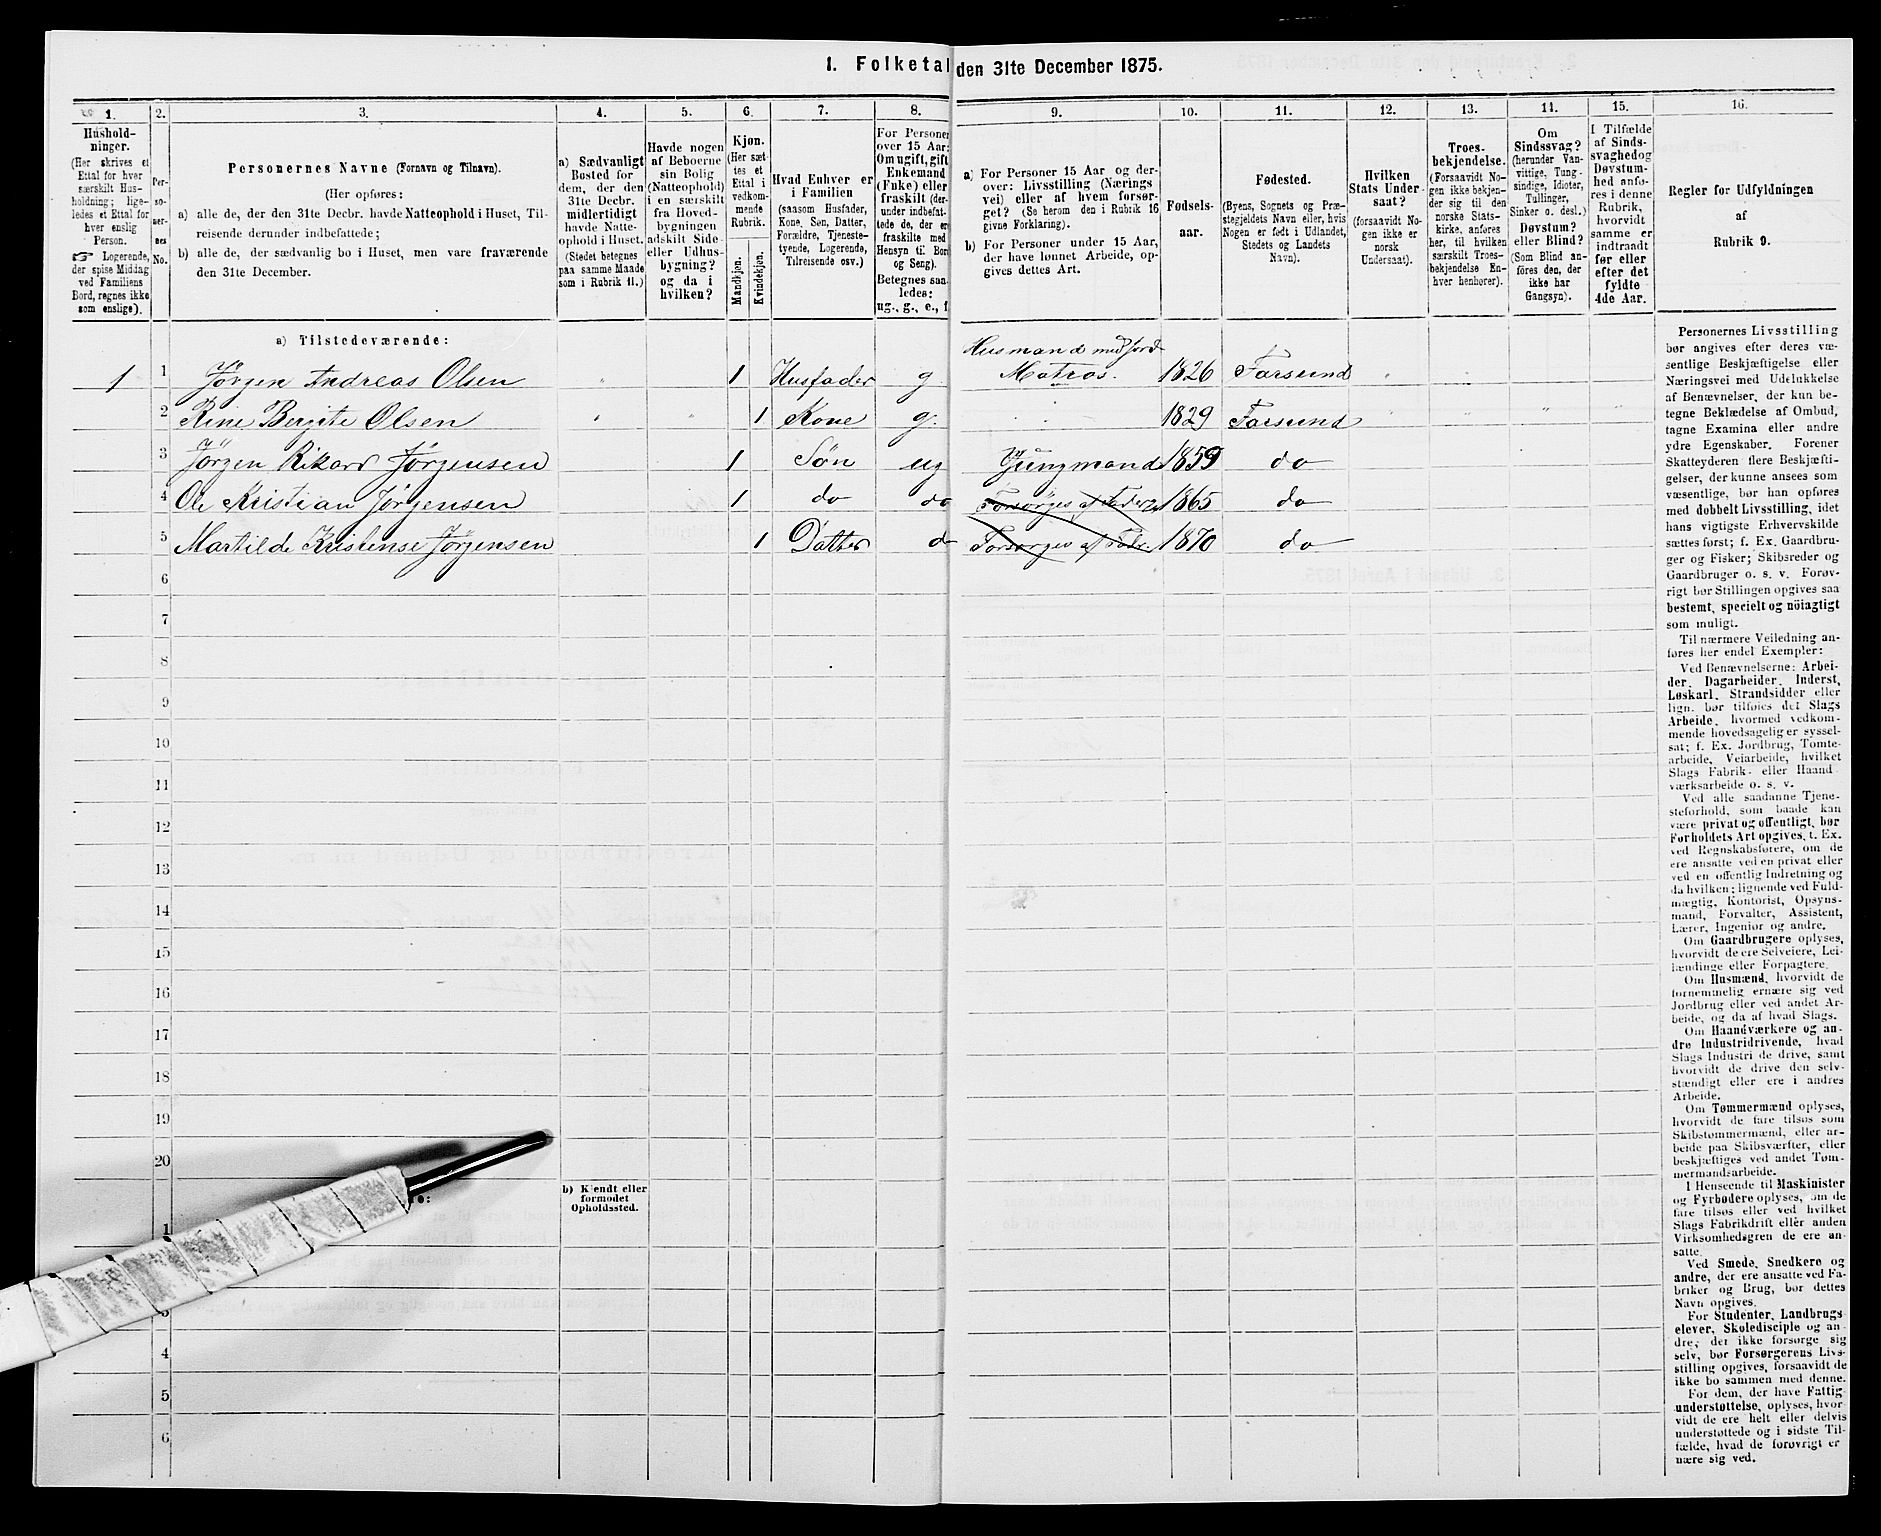 1. Folketal den 31te December 1875.
1.
2.
3.
4.
5.
6.
7.
8.
9.
10.
11.
12.
13.
14.
15.
16.
Hushold-
ninger.
(Her skrives et
Ettal for hver
særskilt Hus-
holdning; lige-
ledes et Ettal for
hver enslig
Person.
☞ Logerende,
der spise Middag
ved Familiens
Bord, regnes ikke
som enslige).
Per-
so-
ner-
nes
No.
Personernes Navne (Fornavn og Tilnavn).
(Her opføres:
a) alle de, der den 31te Decbr. havde Natteophold i Huset, Til-
reisende derunder indbefattede;
b) alle de, der sædvanlig bo i Huset, men vare fraværende
den 31te December.
a) Sædvanligt
Bosted for
dem, der den
31te Decbr.
midlertidigt
havde Natte-
ophold i Huset.
(Stedet betegnes
paa samme Maade
som i Rubrik 11.)
Havde nogen
af Beboerne
sin Bolig
(Natteophold)
i en særskilt
fra Hoved-
bygningen
adskilt Side-
eller Udhus-
bygning?
og da i
hvilken?
Kjøn.
(Her sæt-
tes et
Ettal i
vedkom-
mende
Rubrik.
Mandkjøn.
Kvindekjøn.
Hvad Enhver er
i Familien
(saasom Husfader,
Kone, Søn, Datter,
Forældre, Tjeneste-
tyende, Logerende,
Tilreisende osv.)
For Personer
over 15 Aar:
Om ugift, gift
Enkemand
(Enke) eller
fraskilt (der-
under indbefat-
tede de, der er
fraskilte med
Hensyn til Bord
og Seng).
Betegnes saa-
ledes:
ug., g., e., f.
a) For Personer 15 Aar og der-
over: Livsstilling (Nærings
vei) eller af hvem forsør-
get? (Se herom den i Rubrik 16
givne Forklaring).
b) For Personer under 15 Aar,
der have lønnet Arbeide, op-
gives dettes Art.
Fødsels-
aar.
Fødested.
(Byens, Sognets og Præ-
stegjeldets Navn eller, hvis
Nogen er født i Udlandet,
Stedets og Landets
Navn).
Hvilken
Stats Under-
saat?
(forsaavidt No-
gen ikke er
norsk
Undersaat).
Troes-
bekjendelse.
(Forsaavidt No-
gen ikke bekjen-
der sig til den
norske Stats-
kirke, anføres
her, til hvilken
særskilt Troes-
bekjendelse En-
hver henhører).
Om
Sindssvag?
(herunder Van-
vittige, Tung-
sindige, Idioter,
Tullinger,
Sinker o. desl.)
Døvstum?
eller Blind?
(Som Blind an-
føres den, der
ikke har
Gangsyn).
I Tilfælde
af Sinds-
svaghed og
Døvstum-
hed anfø-
res i denne
Rubrik,
hvorvidt
samme er
indtraadt
før eller
efter det
fyldte
4de Aar.
Regler for Udfyldningen
af
Rubrik 9.
a) Tilstedeværende:
Husmand med jord
1 1 Jørgen Andreas Olsen 1 Husfader g Matros. 1826 Farsund
2 Rine Bergite Olsen 1 Kone g. 1829 Farsund
3 Jørgen Rikard Jørgensen 1 Søn ug Jungmand 1859 do
4 Ole Kristian Jørgensen 1 do do Forsørges af Fader 1865 do
5 Martilde Kristense Jørgensen 1 Datter do Forsørges af Fader 1870 do
6
7
8
9
10
11
12
13
14
15
16
17
18
19
20
b) Kjendt eller
formodet
Opholdssted.
1
3
4
5
6
Personernes Livsstilling
bør angives efter deres væ-
sentlige Beskjæftigelse eller
Næringsvei med Udelukkelse
af Benævnelser, der kun be-
tegne Beklædelse af Ombud,
tagne Examina eller andre
ydre Egenskaber. Forener
Skatteyderen flere Beskjæfti-
gelser, der kunne ansees som
væsentlige, bør han opføres
med dobbelt Livsstilling, idet
hans vigtigste Erhvervskilde
sættes først; f. Ex. Gaardbru-
ger og Fisker; Skibsreder og
Gaardbruger o. s. v. Forøv-
rigt bør Stillingen opgives saa
bestemt, specielt og nöiagtigt
som muligt.
Til nærmere Veiledning an-
føres her endel Exempler:
Ved Benævnelserne: Arbei-
der, Dagarbeider, Inderst,
Løskarl, Strandsidder eller
lign. bør tilføies det Slags
Arbeide, hvormed vedkom-
mende hovedsagelig er syssel-
sat; f. Ex. Jordbrug, Tomte-
arbeide, Veiarbeide, hvilket
Slags Fabrik- eller Haand-
værksarbeide o. s. v.
Ved alle saadanne Tjene-
steforhold, som baade kan
være privat og offentligt, bør
Forholdets Art opgives, t. Ex.
ved Regnskabsførere, om de
ere ansatte ved en privat eller
ved en offentlig Indretning og
da hvilken; lignende ved Fuld-
mægtig, Kontorist, Opsyns-
mand, Forvalter, Assistent,
Lærer, Ingeniør og andre.
Om Gaardbrugere oplyses,
hvorvidt de ere Selveiere, Lei-
lændinge eller Forpagtere.
Om Husmænd, hvorvidt de
fornemmelig ernære sig ved
Jordbrug eller ved andet Ar-
beide, og da af hvad Slags.
Om Haandværkere og an-
dre Industridrivende, hvad
Slags Industri de drive, samt
hvorvidt de drive den selv-
stændigt eller ere i andres
Arbeide.
Om Tømmermænd oplyses,
hvorvidt de fare tilsøs som
Skibstømmermænd, eller ar-
beide paa Skibsværfter, eller
beskjæftiges ved andet Tøm-
mermandsarbeide.
I Henseende til Maskinister
og Fyrbødere oplyses, om de
fare tilsøs eller ved hvilket
Slags Fabrikdrift eller anden
Virksomhedsgren de ere an-
satte.
Ved Smede, Snedkere og
andre, der ere ansatte ved Fa-
briker og Brug, bør dettes
Navn opgives.
For Studenter, Landbrugs-
elever, Skoledisciple og an-
dre, der ikke forsørge sig
selv, bør Forsørgerens Livs-
stilling opgives, forsaavidt de
ikke bo sammen med denne.
For dem, der have Fattig-
understøttelse, oplyses, hvor-
vidt de ere helt eller delvis
understøttede og i sidste Til-
fælde, hvad de forøvrigt er-
nære sig ved.